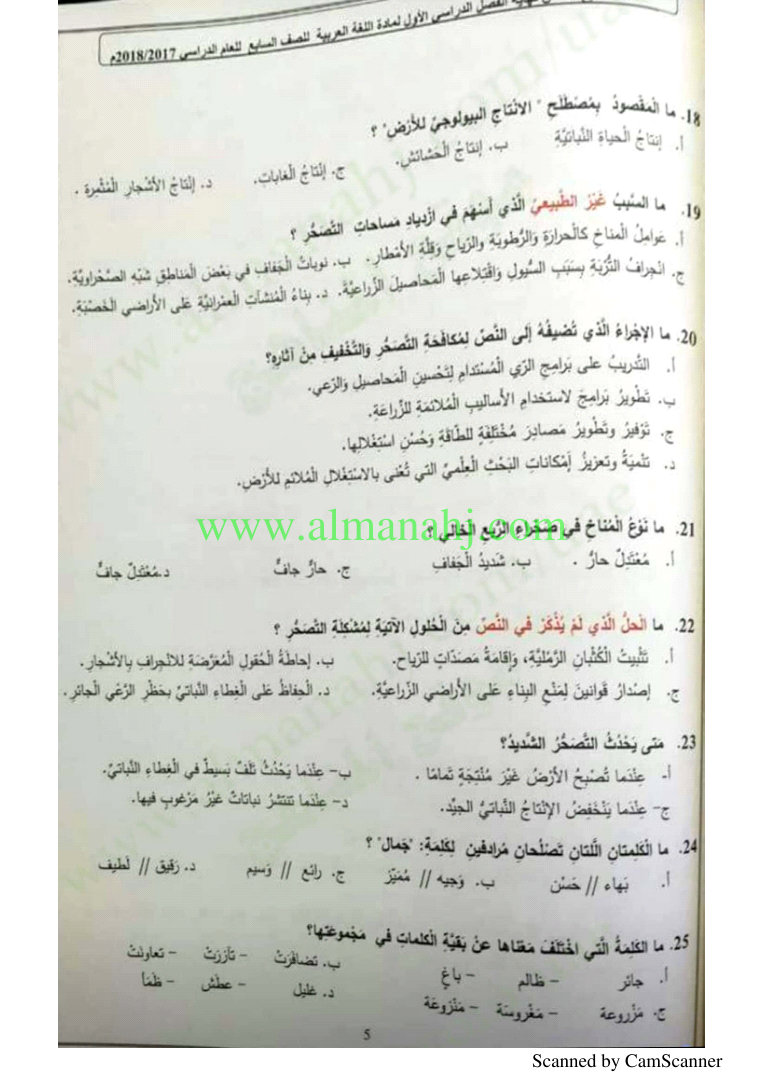 نهاية الفصل الدراسي الأول لمادة اللغة العربية للصف السابع للعام الدراسي 2018/2017م
18. ما الْمَقْصودُ بِمُصْطَلَحِ " الانْتاجِ البيولوجيِّ للأَرْضِ" ؟
أ. إنتاجُ الْحياةِ النَّباتيَّةِ ب. إنتاجُ الْحَشائشِ. ج. إنْتاجُ الْغاباتِ. د. إنْتاجُ الأَشْجارِ الْمُثْمِرةِ .
19. ما السَّببُ غَيْرُ الطَّبيعيِّ الَّذي أَسْهَمَ في ازْديادِ مَساحاتِ التَّصَحُّرِ ؟
أ. عَوامِلُ الْمناخِ كالْحرارَةِ وَالرُّطوبَةِ والرِّياحِ وَقِلَّةِ الأَمْطارِ. ب. نوباتُ الْجَفافِ في بَعْضِ الْمَناطِقِ شَبْهِ الصَّحْراويَّةِ.
ج. انْجِرافُ التُّرْبَةِ بِسَبَبِ السُّيولِ وَاقْتِلاعِها الْمَحاصيلَ الزِّراعيَّةَ. د. بِناءُ الْمُنْشَآتِ الْعمْرانيَّةِ عَلى الأَراضي الْخَصْبَةِ.
20. ما الإجْراءُ الَّذي تُضْيفُهُ إلى النَّصِّ لِمُكافَحَةِ التَّصَحُّرِ وَالتَّخْفيفِ مِنْ آثارِهِ؟
أ. التَّدريبُ على بَرامِجِ الرّي الْمُسْتَدامِ لِتَحْسينِ الْمَحاصيلِ وَالرَّعي.
ب. تَطْويرُ بَرامِجَ لاستخدامِ الأَساليبِ الْمُلائمَةِ للزِّراعَةِ.
ج. تَوْفيرُ وتَطْويرُ مَصادِرَ مُخْتَلِفَةٍ للطّاقَةِ وَحُسْنِ اسْتِغْلالِها.
د. تَنْميَةُ وتَعْزيزُ إمْكاناتِ البَحْثِ العِلْميِّ التي تُعْنى بالاسْتِغْلالِ الْمُلائمِ للأَرْضِ.
www.almanahj.com
21. ما نَوْعُ الْمُناخِ في صَحْراءِ الرُّبعِ الْخالي ؟
أ. مُعْتَدِلٌ حارٌّ . ب. شَديدُ الْجَفافِ ج. حارٌّ جافٌّ د.مُعْتَدِلٌ جافٌّ
22. ما الْحلُّ الَّذي لَمْ يُذْكَرْ في النَّصِّ مِنَ الْحُلولِ الآتيَةِ لِمُشْكِلَةِ التَّصَحُّرِ ؟
أ. تَثْبيتُ الْكُثْبانِ الرَّمْليَّةِ، وَإقامَةُ مَصَدّاتٍ للرِّياحِ. ب. إحاطَةُ الْحُقولِ الْمُعَرَّضَةِ للانْجِرافِ بِالأَشْجارِ.
ج. إصْدارُ قَوانينَ لِمَنْعِ البِناءِ عَلى الأَراضي الزِّراعيَّةِ. د. الْحِفاظُ عَلى الْغِطاءِ النَّباتيِّ بِحَظْرِ الرَّعْي الْجائرِ.
23. مَتى يَحْدُثُ التَّصَحُّرُ الشَّديدُ؟
أ- عِنْدَما تُصْبِحُ الأَرْضُ غَيْرَ مُنْتِجَةٍ تَمامًا . ب- عِنْدَما يَحْدُثُ تَلَفٌ بَسيطٌ في الْغِطاءِ النَّباتيِّ.
ج- عِنْدَما يَنْخَفِضُ الإنْتاجُ النَّباتيُّ الجيِّد. د- عِنْدَما تنتشرُ نباتاتٌ غَيْرُ مَرْغوبٍ فيها.
24. ما الْكَلِمتانِ اللَّتانِ تَصْلُحانِ مُرادفينِ لِكَلِمَةِ: "جَمال" ؟
أ. بَهاء // حُسْن ب. وَجيه // مُميّز ج. رائع // وَسيم د. رَقيق // لَطيف
25. ما الكَلِمَةُ الَّتي اخْتَلَفَ مَعْناها عنْ بَقيَّةِ الْكَلماتِ في مَجْموعَتِها؟
أ. جائر – ظالم – باغٍ ب. تضافَرَتْ – تآزرَتْ – تعاونَتْ
ج. مَزْروعة – مَغْروسَة – مَنْزوعَة د. غليل – عطَش – ظمَأ
5
Scanned by CamScanner